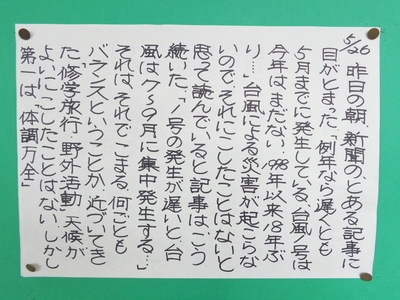 5/26 昨日の朝、新聞の、とある記事に
目がとまった。例年なら遅くとも
5月までに発生している、台風1号は
今年は、まだない。1998年以来18年ぶ
り…」台風による災害が起こらな
いので、それにこしたことはないと
思って読んでいると記事は、こう
続いた。「1号の発生が遅いと、台
風は7〜9月に集中発生する…」
それは、それでこまる。何ごとも
バランスということか。近づいてき
た「修学旅行」「野外活動」天候が
よいにこしたことはない。しかし
第一は「体調万全」